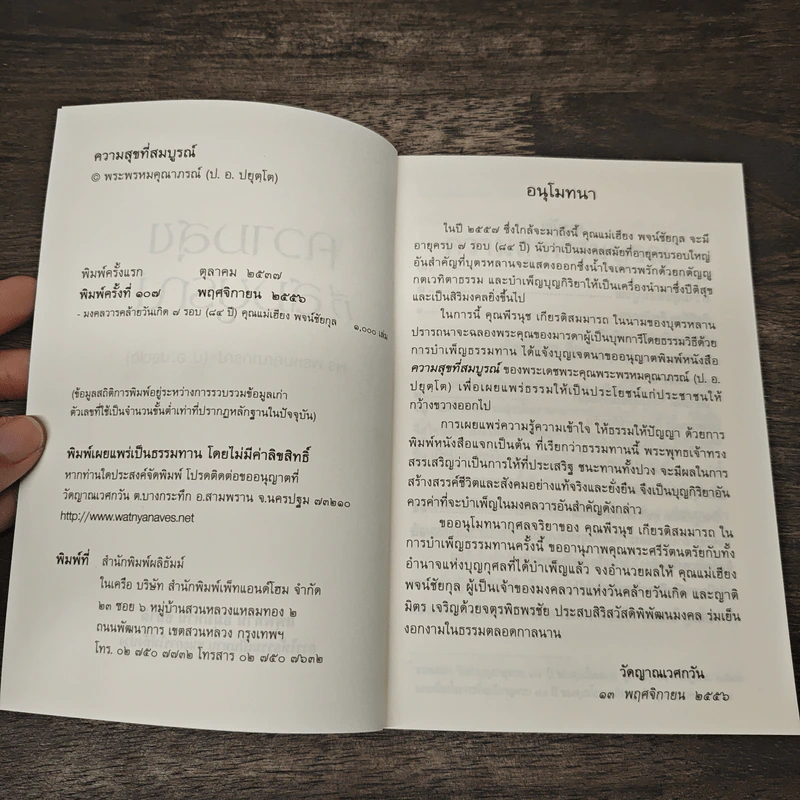 ความสุขที่สมบูรณ์
© พระพรหมคุณาภรณ์ (ป. อ. ปยุตฺโต)
พิมพ์ครั้งแรก ตุลาคม ๒๕๓๗
พิมพ์ครั้งที่ ๑๐๗ พฤศจิกายน ๒๕๕๖
- มงคลวารคล้ายวันเกิด ๗ รอบ (๘๔ ปี) คุณแม่เฮียง พจน์ชัยกุล ๑,๐๐๐ เล่ม
(ข้อมูลสถิติการพิมพ์อยู่ระหว่างการรวบรวมข้อมูลเก่า
ตัวเลขที่ใช้เป็นจำนวนขั้นต่ำเท่าที่ปรากฏหลักฐานในปัจจุบัน)
พิมพ์เผยแพร่เป็นธรรมทาน โดยไม่มีค่าลิขสิทธิ์
หากท่านใดประสงค์จัดพิมพ์ โปรดติดต่อขออนุญาตที่
วัดญาณเวศกวัน ต.บางกระทึก อ.สามพราน จ.นครปฐม ๗๓๒๑๐
http://www.watnyanaves.net
พิมพ์ที่ สำนักพิมพ์ผลิธัมม์
ในเครือ บริษัท สำนักพิมพ์เพ็ทแอนด์โฮม จำกัด
๒๓ ซอย ๖ หมู่บ้านสวนหลวงแหลมทอง ๒
ถนนพัฒนาการ เขตสวนหลวง กรุงเทพฯ
โทร. ๐๒ ๗๕๐ ๗๗๓๒ โทรสาร ๐๒ ๗๕๐ ๗๖๓๒
อนุโมทนา
ในปี ๒๕๕๗ ซึ่งใกล้จะมาถึงนี้ คุณแม่เฮียง พจน์ชัยกุล จะมี
อายุครบ ๗ รอบ (๘๔ ปี) นับว่าเป็นมงคลสมัยที่อายุครบรอบใหญ่
อันสำคัญที่บุตรหลานจะแสดงออกซึ่งน้ำใจเคารพรักด้วยกตัญญู
กตเวทิตาธรรม และบำเพ็ญบุญกิริยาให้เป็นเครื่องนำมาซึ่งปีติสุข
และเป็นสิริมงคลยิ่งขึ้นไป
ในการนี้ คุณพีรนุช เกียรติสมมารถ ในนามของบุตรหลาน
ปรารถนาจะฉลองพระคุณของมารดาผู้เป็นบุพการีโดยธรรมวิธีด้วย
การบำเพ็ญธรรมทาน ได้แจ้งบุญเจตนาขออนุญาตพิมพ์หนังสือ
ความสุขที่สมบูรณ์ ของพระเดชพระคุณพระพรหมคุณาภรณ์ (ป. อ.
ปยุตฺโต) เพื่อเผยแพร่ธรรมให้เป็นประโยชน์แก่ประชาชนให้
กว้างขวางออกไป
การเผยแพร่ความรู้ความเข้าใจ ให้ธรรมให้ปัญญา ด้วยการ
พิมพ์หนังสือแจกเป็นต้น ที่เรียกว่าธรรมทานนี้ พระพุทธเจ้าทรง
สรรเสริญว่าเป็นการให้ที่ประเสริฐ ชนะทานทั้งปวง จะมีผลในการ
สร้างสรรค์ชีวิตและสังคมอย่างแท้จริงและยั่งยืน จึงเป็นบุญกิริยาอัน
ควรค่าที่จะบำเพ็ญในมงคลวารอันสำคัญดังกล่าว
ขออนุโมทนากุศลจริยาของ คุณพีรนุช เกียรติสมมารถ ใน
การบำเพ็ญธรรมทานครั้งนี้ ขออานุภาพคุณพระศรีรัตนตรัยกับทั้ง
อำนาจแห่งบุญกุศลที่ได้บำเพ็ญแล้ว จงอำนวยผลให้ คุณแม่เฮียง
พจน์ชัยกุล ผู้เป็นเจ้าของมงคลวารแห่งวันคล้ายวันเกิด และญาติ
มิตร เจริญด้วยจตุรพิธพรชัย ประสบสิริสวัสดิ์พิพัฒนมงคล ร่มเย็น
งอกงามในธรรมตลอดกาลนาน
วัดญาณเวศกวัน
๑๓ พฤศจิกายน ๒๕๕๖